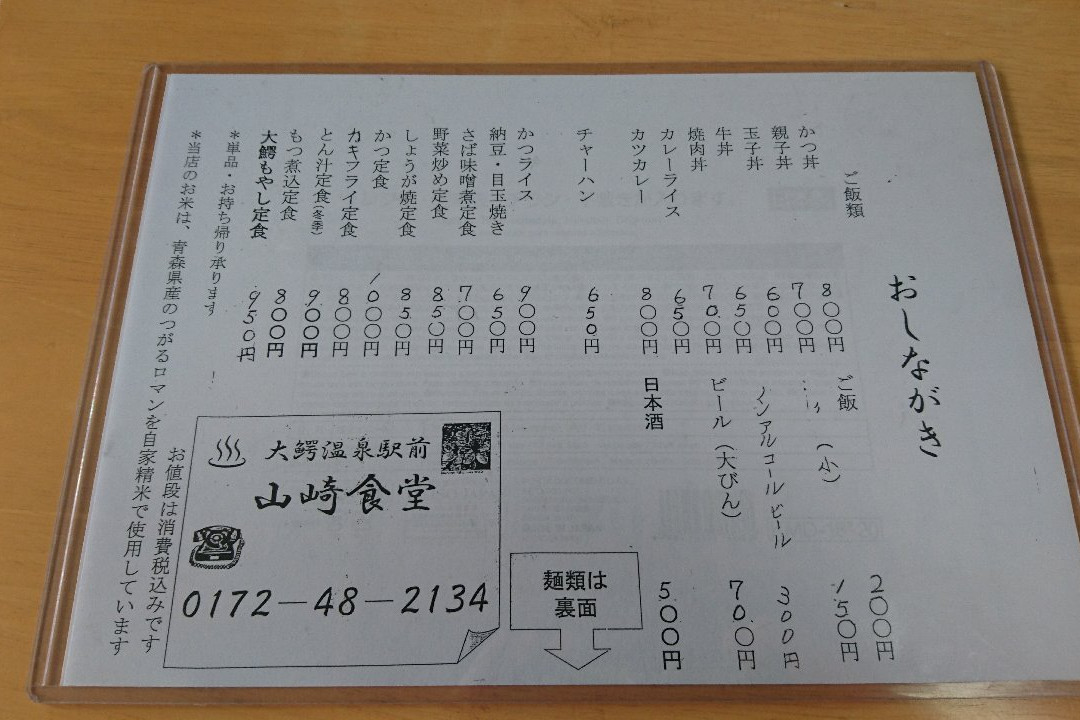 おしながき
ご飯類
かつ丼 800円
親子丼 700円
玉子丼 600円
牛丼 650円
焼肉丼 700円
カレーライス 650円
カツカレー 800円
チャーハン 650円
かつライス 900円
納豆・目玉焼き 650円
さば味噌煮定食 700円
野菜炒め定食 850円
しょうが焼定食 850円
かつ定食 1000円
カキフライ定食 800円
とん汁定食(冬季) 900円
もつ煮込定食 800円
大鰐もやし定食 950円
ご飯 200円
〃 (小) 150円
ノンアルコールビール 300円
ビール(大びん) 700円
日本酒 500円
*単品・お持ち帰り承ります
*当店のお米は、青森県産のつがるロマンを自家精米で使用しています
お値段は消費税込みです
大鰐温泉駅前
山崎食堂
0172-48-2134
麺類は
裏面